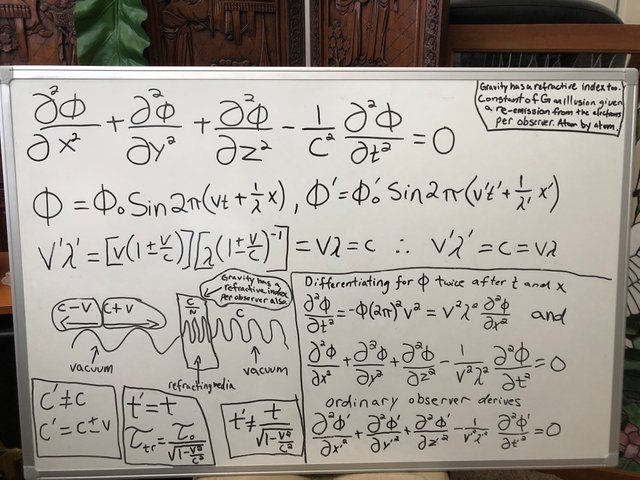 Gravity has a refractive index too.
Constant of G an illusion given
a re-emission from the electrons
per observer. Atom by atom.
∂²Φ/∂x² + ∂²Φ/∂y² + ∂²Φ/∂z² − 1/c² ∂²Φ/∂t² = 0
Φ = Φ₀ Sin2π(νt + 1/λ x), Φ' = Φ₀' Sin2π(ν't' + 1/λ' x')
V'λ' = [ν(1±v/c)][λ(1±v/c)⁻¹] = νλ = c ∴ ν'λ' = c = νλ
Gravity has a
refractive index
per observer also.
c−v c+v
c/N
c
vacuum
refracting media
vacuum
c' ≠ c
c' = c±v
t' = t
τtr = τ₀/√(1−v²/c²)
t' ≠ t/√(1−v²/c²)
Differentiating for Φ twice after t and x
∂²Φ/∂t² = −Φ(2π)²ν² = ν²λ² ∂²Φ/∂x² and
∂²Φ/∂x² + ∂²Φ/∂y² + ∂²Φ/∂z² − 1/ν²λ² ∂²Φ/∂t² = 0
ordinary observer derives
∂²Φ'/∂x'² + ∂²Φ'/∂y'² + ∂²Φ'/∂z'² − 1/ν'²λ'² ∂²Φ'/∂t'² = 0